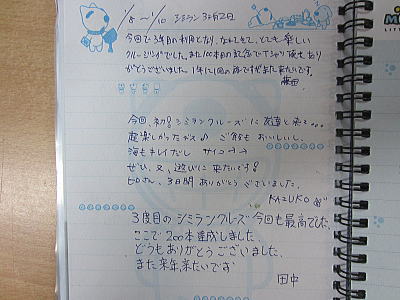 1/8 〜 1/10 シミラン3泊2日
今回で3年目の利用となり、なんせ、とても楽しい
クルージングでした。また100本目の記念でTシャツ頂き、あり
がとうございました。1年に1回の
また来たいです。
藤田
今回、初!シミランクルーズに
超楽しかったデス♪ ご飯も おいしいし、
海もキレイだし サイコー
ぜひ、又、遊びに来たいです!
3日間 ありがとう ございました。
KAZUKO
3度目のシミランクルーズ今回も最高でした。
ここで200本達成しました。
どうもありがとうございました。
また来年、来たいです
田中